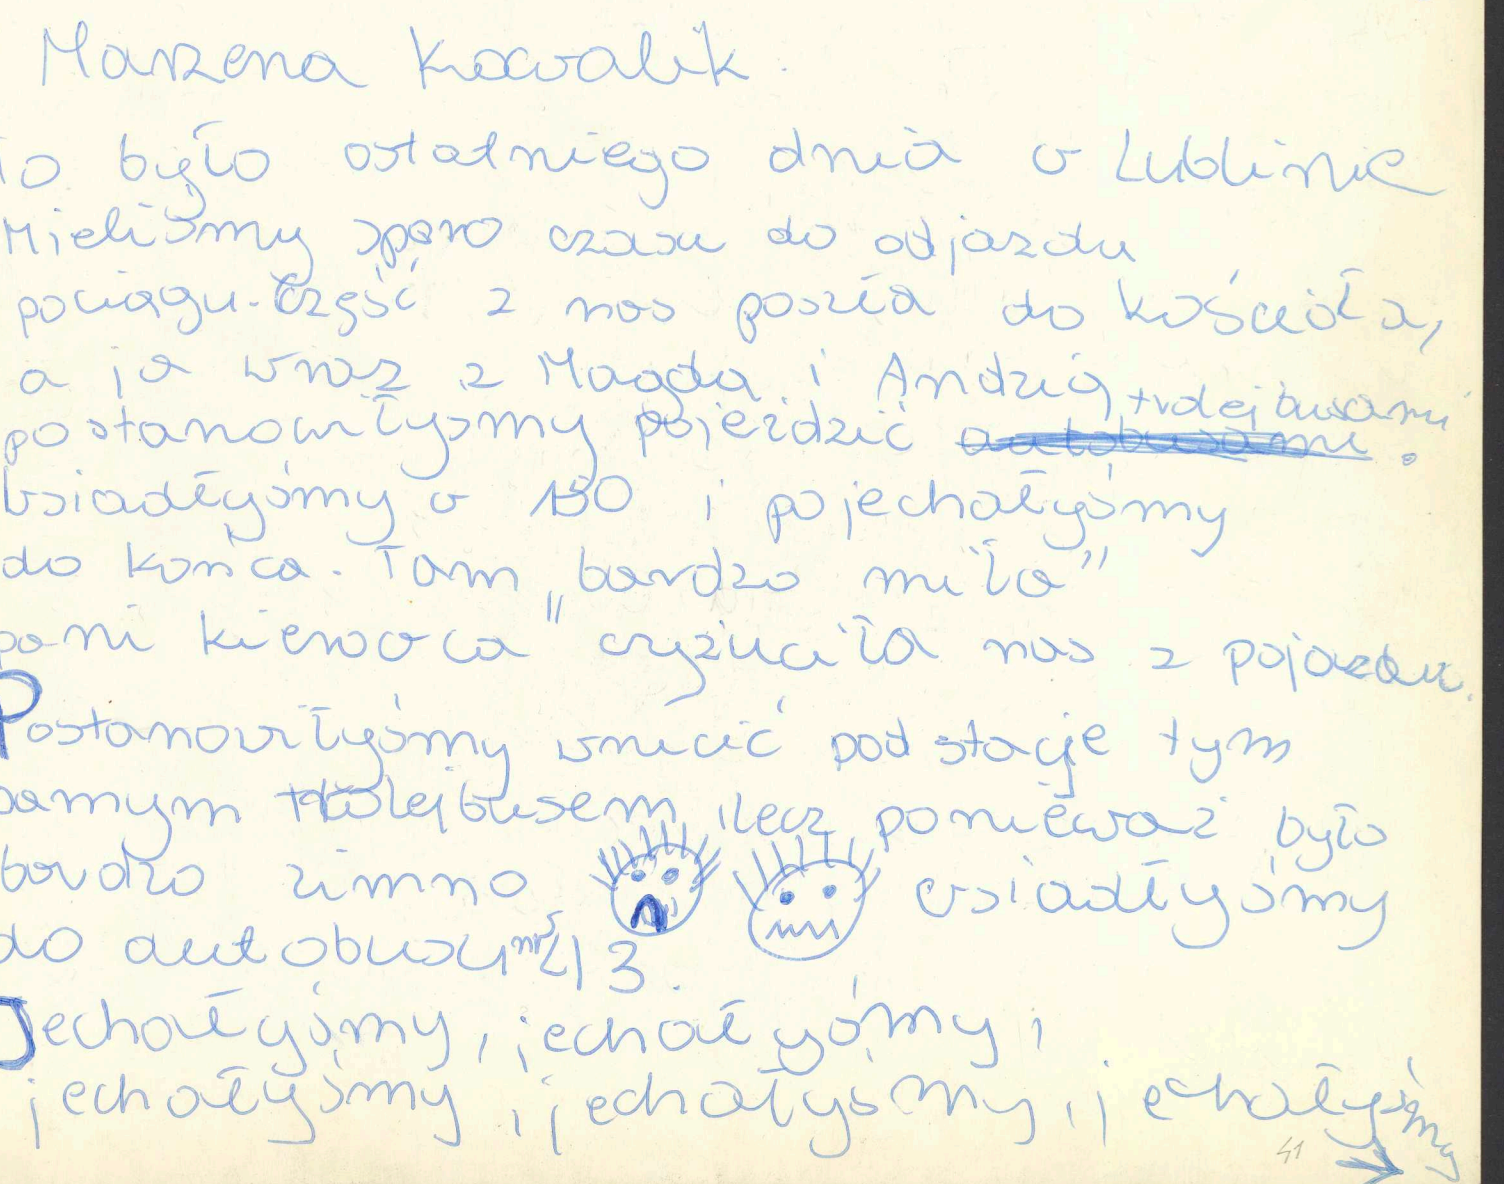 Marzena Kowalik.
To było ostatniego dnia w Lublinie
Mieliśmy sporo czasu do odjazdu
pociągu. Część z nas poszła do kościoła,
a ja wraz z Magdą i Andzią
postanowiłyśmy pojeździć ~~autobusami~~ trolejbusami.
Wsiadłyśmy w 150 i pojechałyśmy
do końca. Tam "bardzo miła"
pani kierowca wyżuciła nas z pojazdu.
Postanowiłyśmy wrócić pod stację tym
samym trolejbusem, lecz ponieważ było
bardzo zimno wsiadłyśmy
do autobusu nr 13.
Jechałyśmy, jechałyśmy,
jechałyśmy, jechałyśmy, jechałyśmy
41